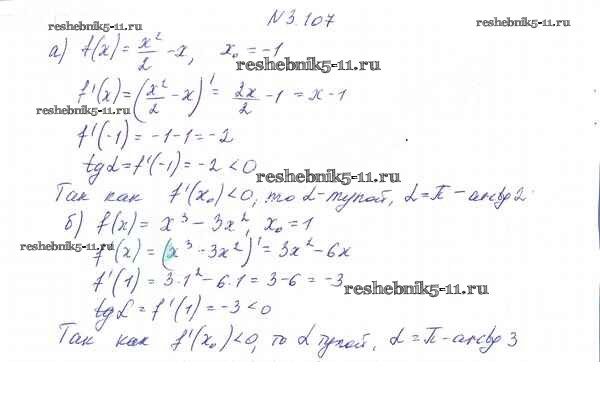 N 3.107
reshebnik5-11.ru
reshebnik5-11.ru
а) f(x) = x²/2 - x, x₀ = -1
reshebnik5-11.ru
f'(x) = (x²/2 - x)' = 2x/2 - 1 = x - 1
reshebnik5-11.ru
f'(-1) = -1 - 1 = -2
tg α = f'(-1) = -2 < 0
reshebnik5-11.ru
Так как f'(x₀) < 0, то α - тупой, α = π - arctg 2.
б) f(x) = x³ - 3x², x₀ = 1
reshebnik5-11.ru
f'(x) = (x³ - 3x²)' = 3x² - 6x
f'(1) = 3·1² - 6·1 = 3 - 6 = -3
reshebnik5-11.ru
tg α = f'(1) = -3 < 0
Так как f'(x₀) < 0, то α тупой, α = π - arctg 3